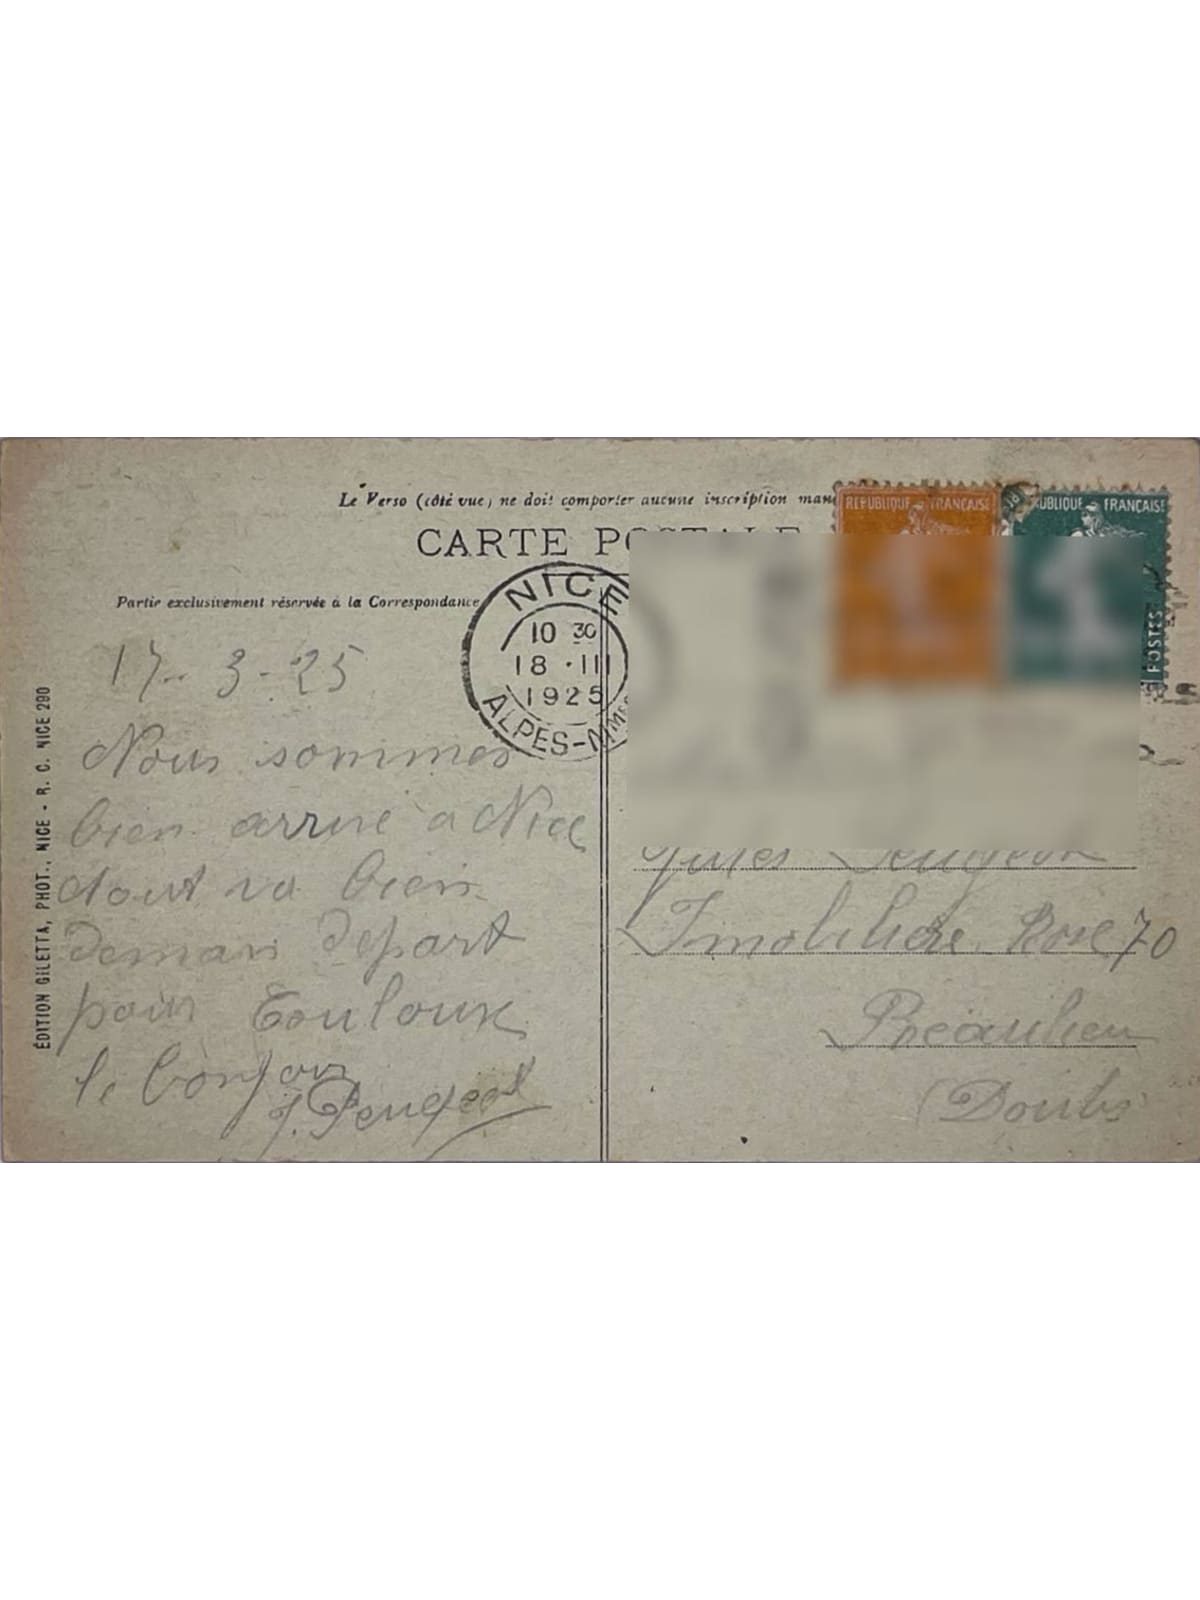 Le Verso (côté vue) ne doit comporter aucune inscription
CARTE
Partie exclusivement réservée à la Correspondance
NICE
10 30
18 · III
1925
ALPES-Mmes
REPUBLIQUE FRANÇAISE
FRANÇAISE
POSTES
ÉDITION GILETTA, PHOT., NICE - R. C. NICE 290
17-3-25
Nous sommes
bien arrivé a Nice
tout va bien
demain depart
pour Toulouse
le bonjour
J. Peugeot
Jules Peugeot
70
(Doubs)